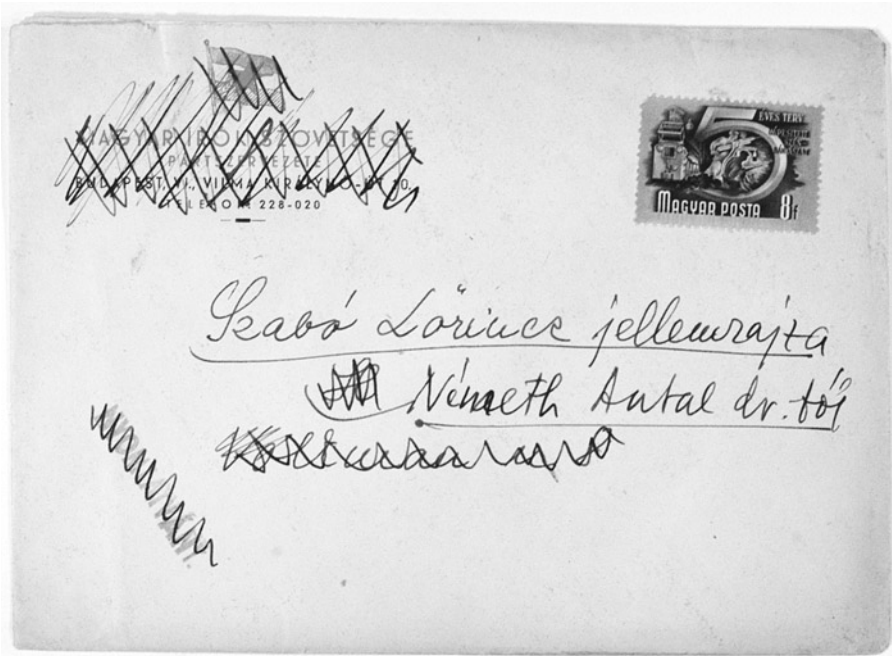 MAGYAR IRÓK SZÖVETSÉGE
PÁRTSZERVEZETE
BUDAPEST, VI., VILMA KIRÁLYNŐ-ÚT 30.
TELEFON: 228-020
5 ÉVES TERV
MAGYAR POSTA 8f
Szabó Lőrincz jellemrajza
Németh Antal dr. tól